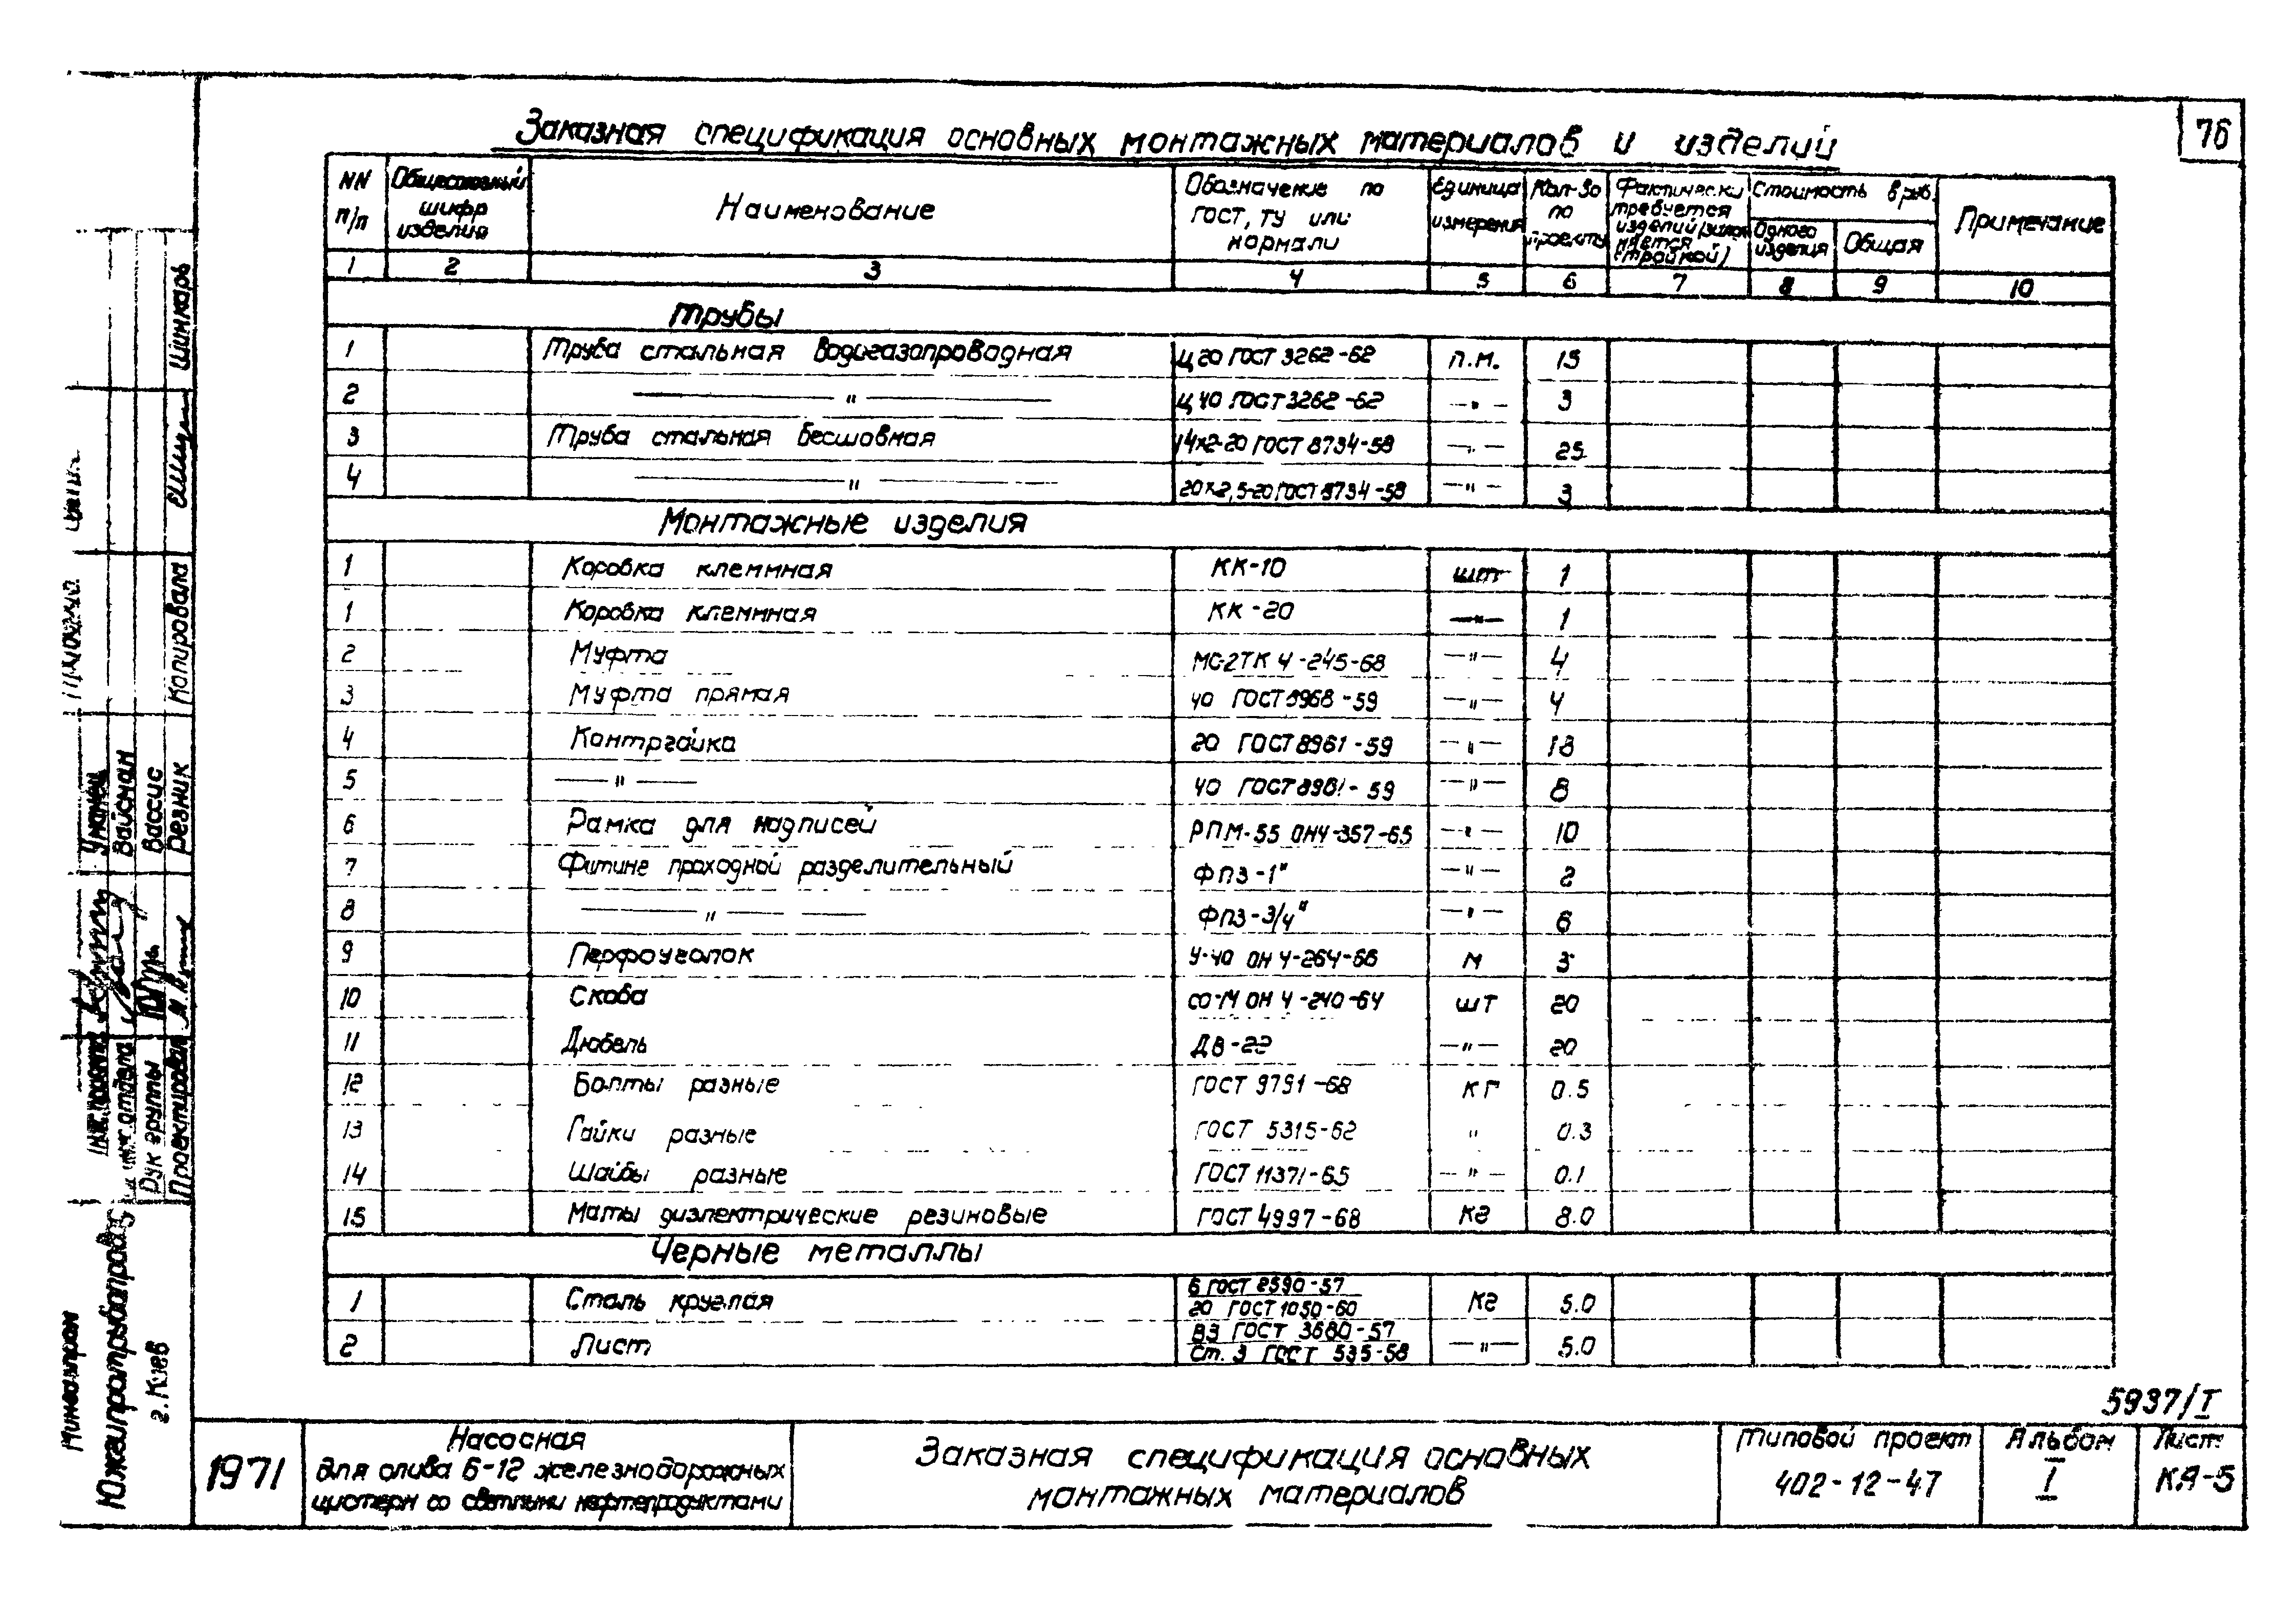 76
Заказная спецификация основных монтажных материалов и изделий
NN п/п | Общесоюзный шифр изделия | Наименование | Обозначение по ГОСТ, ТУ или нормали | Единица измерения | Кол-во по проекту | Фактически требуется изделий (заполняется стройкой) | Стоимость в руб. | Примечание
Одного изделия | Общая
1 2 3 4 5 6 7 8 9 10
Трубы
1 Труба стальная водогазопроводная Ц 20 ГОСТ 3262-62 п.м. 15
2 —"— Ц 40 ГОСТ 3262-62 —"— 3
3 Труба стальная бесшовная 14х2-20 ГОСТ 8734-58 —"— 25
4 —"— 20х2,5-20 ГОСТ 8734-58 —"— 3
Монтажные изделия
1 Коробка клеммная КК-10 шт 1
1 Коробка клеммная КК-20 —"— 1
2 Муфта МС-2ТК 4-245-68 —"— 4
3 Муфта прямая 40 ГОСТ 8968-59 —"— 4
4 Контргайка 20 ГОСТ 8961-59 —"— 18
5 —"— 40 ГОСТ 8961-59 —"— 8
6 Рамка для надписей РПМ-55 ОН4-357-65 —"— 10
7 Фитинг проходной разделительный ФПЗ-1" —"— 2
8 —"— — ФПЗ-3/4" —"— 6
9 Перфоуголок У-40 ОН 4-264-66 м 3
10 Скоба СО-14 ОН 4-240-64 шт 20
11 Дюбель ДВ-22 —"— 20
12 Болты разные ГОСТ 9791-68 кг 0.5
13 Гайки разные ГОСТ 5315-62 " 0.3
14 Шайбы разные ГОСТ 11371-65 —"— 0.1
15 Маты диэлектрические резиновые ГОСТ 4997-68 кг 8.0
Черные металлы
1 Сталь круглая 6 ГОСТ 2590-57 / 20 ГОСТ 1050-60 кг 5.0
2 Лист В3 ГОСТ 3680-57 / Ст. 3 ГОСТ 535-58 —"— 5.0
5937/I
1971
Насосная
для слива 6-12 железнодорожных
цистерн со светлыми нефтепродуктами
Заказная спецификация основных
монтажных материалов
Типовой проект
402-12-47
Альбом
I
Лист
КА-5
Мингазпром
Южгипротрубопровод
г. Киев
Инж. проекта Уманец
отдела Вайсман
Рук группы Вассис
Проектировал Резник
Копировала Шинкарь